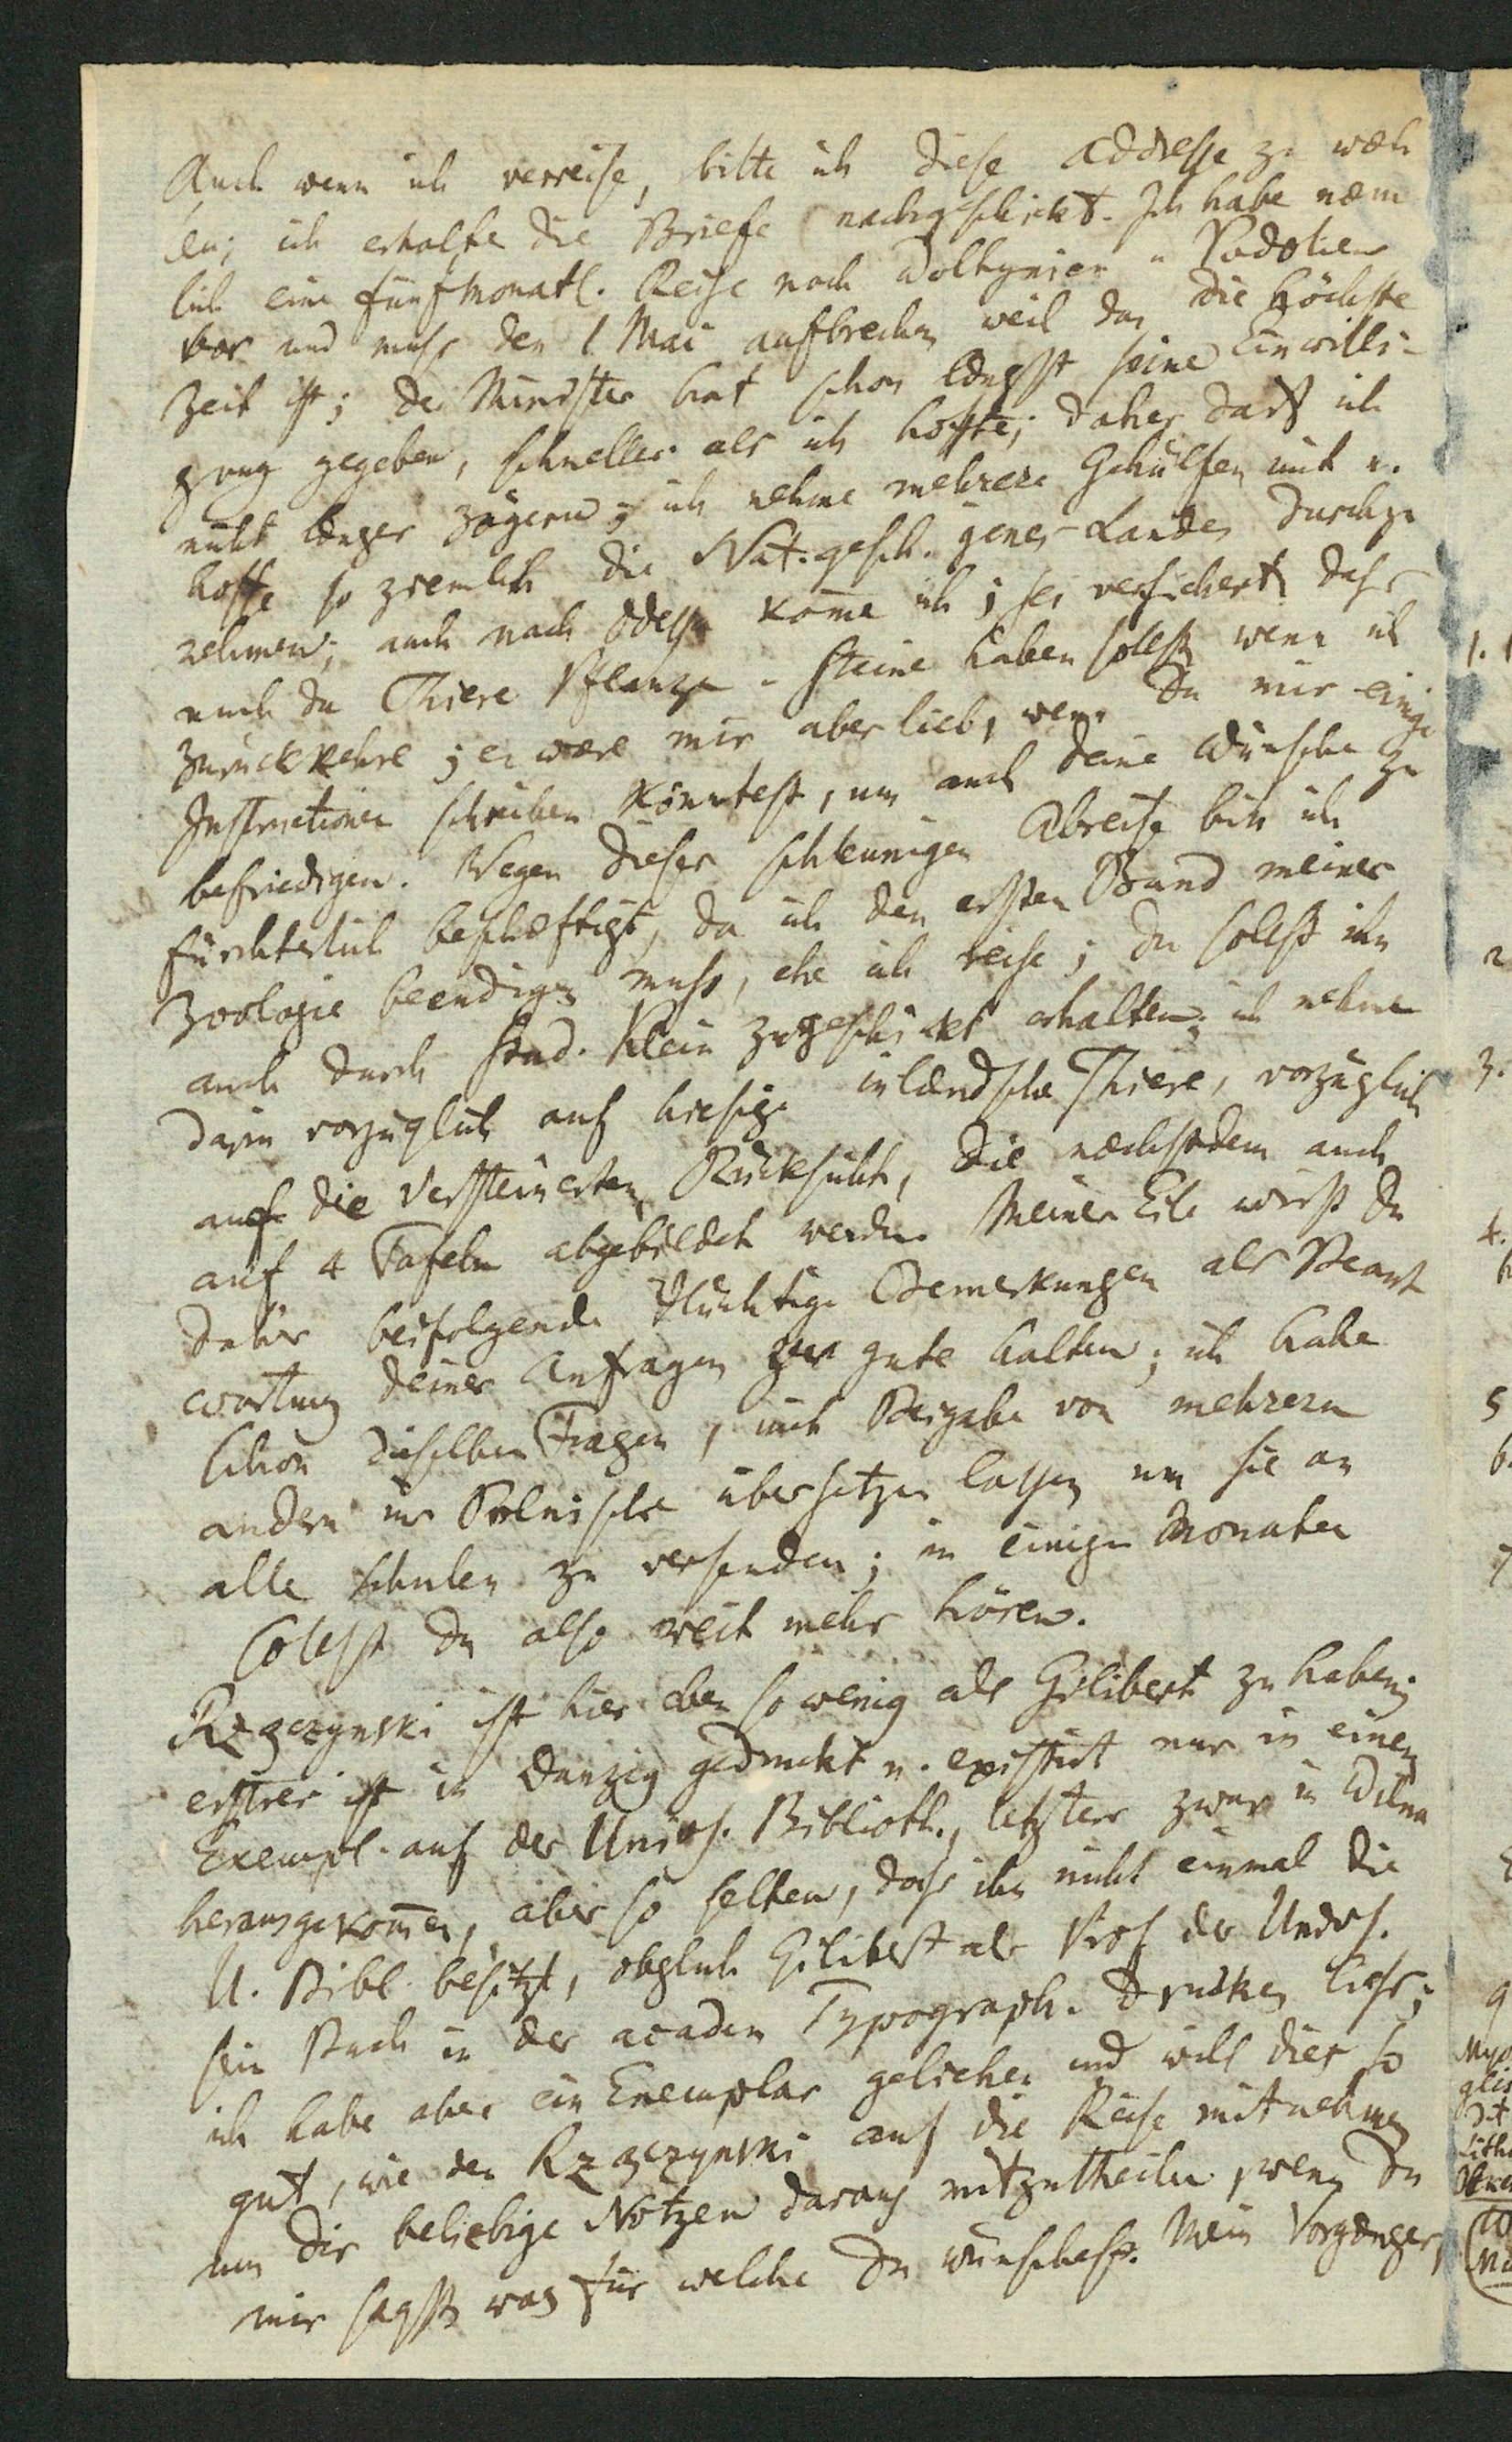 Auch wenn ich verreise, bitte ich diese Addresse zu wäh
len; ich erhalte die Briefe nachgeschickt. Ich habe näm
lich eine fünfmonatl. Reise nach Volhynien u Podolien
vor und muss den 1 Mai aufbrechen weil das die höchste
Zeit ist; der Minister hat schon längst seine Einwilli-
gung gegeben, schneller als ich hoffte; daher darf ich
nicht länger zögern; ich nehme mehrere Gehülfen mit u.
hoffe so ziemlich die Nat. gesch. jenes Landes durchzu
nehmen; auch nach Odessa kom̄e ich; sei versichert dass
auch du Thiere Pflanzen u Steine haben sollst wenn ich
zurückkehre; es wäre mir aber lieb, wenn Du mir einige
Instructionen schreiben könntest, um auch deine Wünsche zu
befriedigen. Wegen dieser schleunigen Abreise bin ich
fürchterlich beschäftigt, da ich den ersten Band meiner
Zoologie beendigen muss, ehe ich reise; du sollst ihn
auch durch Stud. Klein zugeschickt erhalten; ich nehme
darin vorzüglich auf hiesige inländische Thiere, vorzüglich
auf die Versteinerten Rücksicht, die nächstdem auch
auf 4 Tafeln abgebildet werden. Meiner Eile wirst du
daher beifolgende flüchtige Bemerkungen als Beant
wortung deiner Anfragen zu gute halten; ich habe
schon dieselben Fragen, mit Beigabe von mehrern
andern ins Polnische übersetzen lassen um sie an
alle Schulen zu versenden; in einigen Monaten
sollst du also weit mehr hören.
Rzączynski ist hier eben so wenig als Gilibert zu haben;
erstrer ist in Danzig gedruckt u. existirt nur in einem
Exempl. auf der Univers. Biblioth., letzterer zwar in Wilna
herausgekom̄en, aber so selten, dass ihn nicht einmal die
U. Bibl. besitzt, obgleich Gilibert als Prof der Univers.
sein Buch in der academ Typograph. drucken liess;
ich habe aber ein Exemplar geliehen und will dies so
gut, wie den Rzączynski auf die Reise mitnehmen
um dir beliebige Notizen daraus mitzutheilen, wenn du
mir sagst was für welche du wünschest. Mein Vorgänger,
1.
2
3.
4.
5
6.
7
9